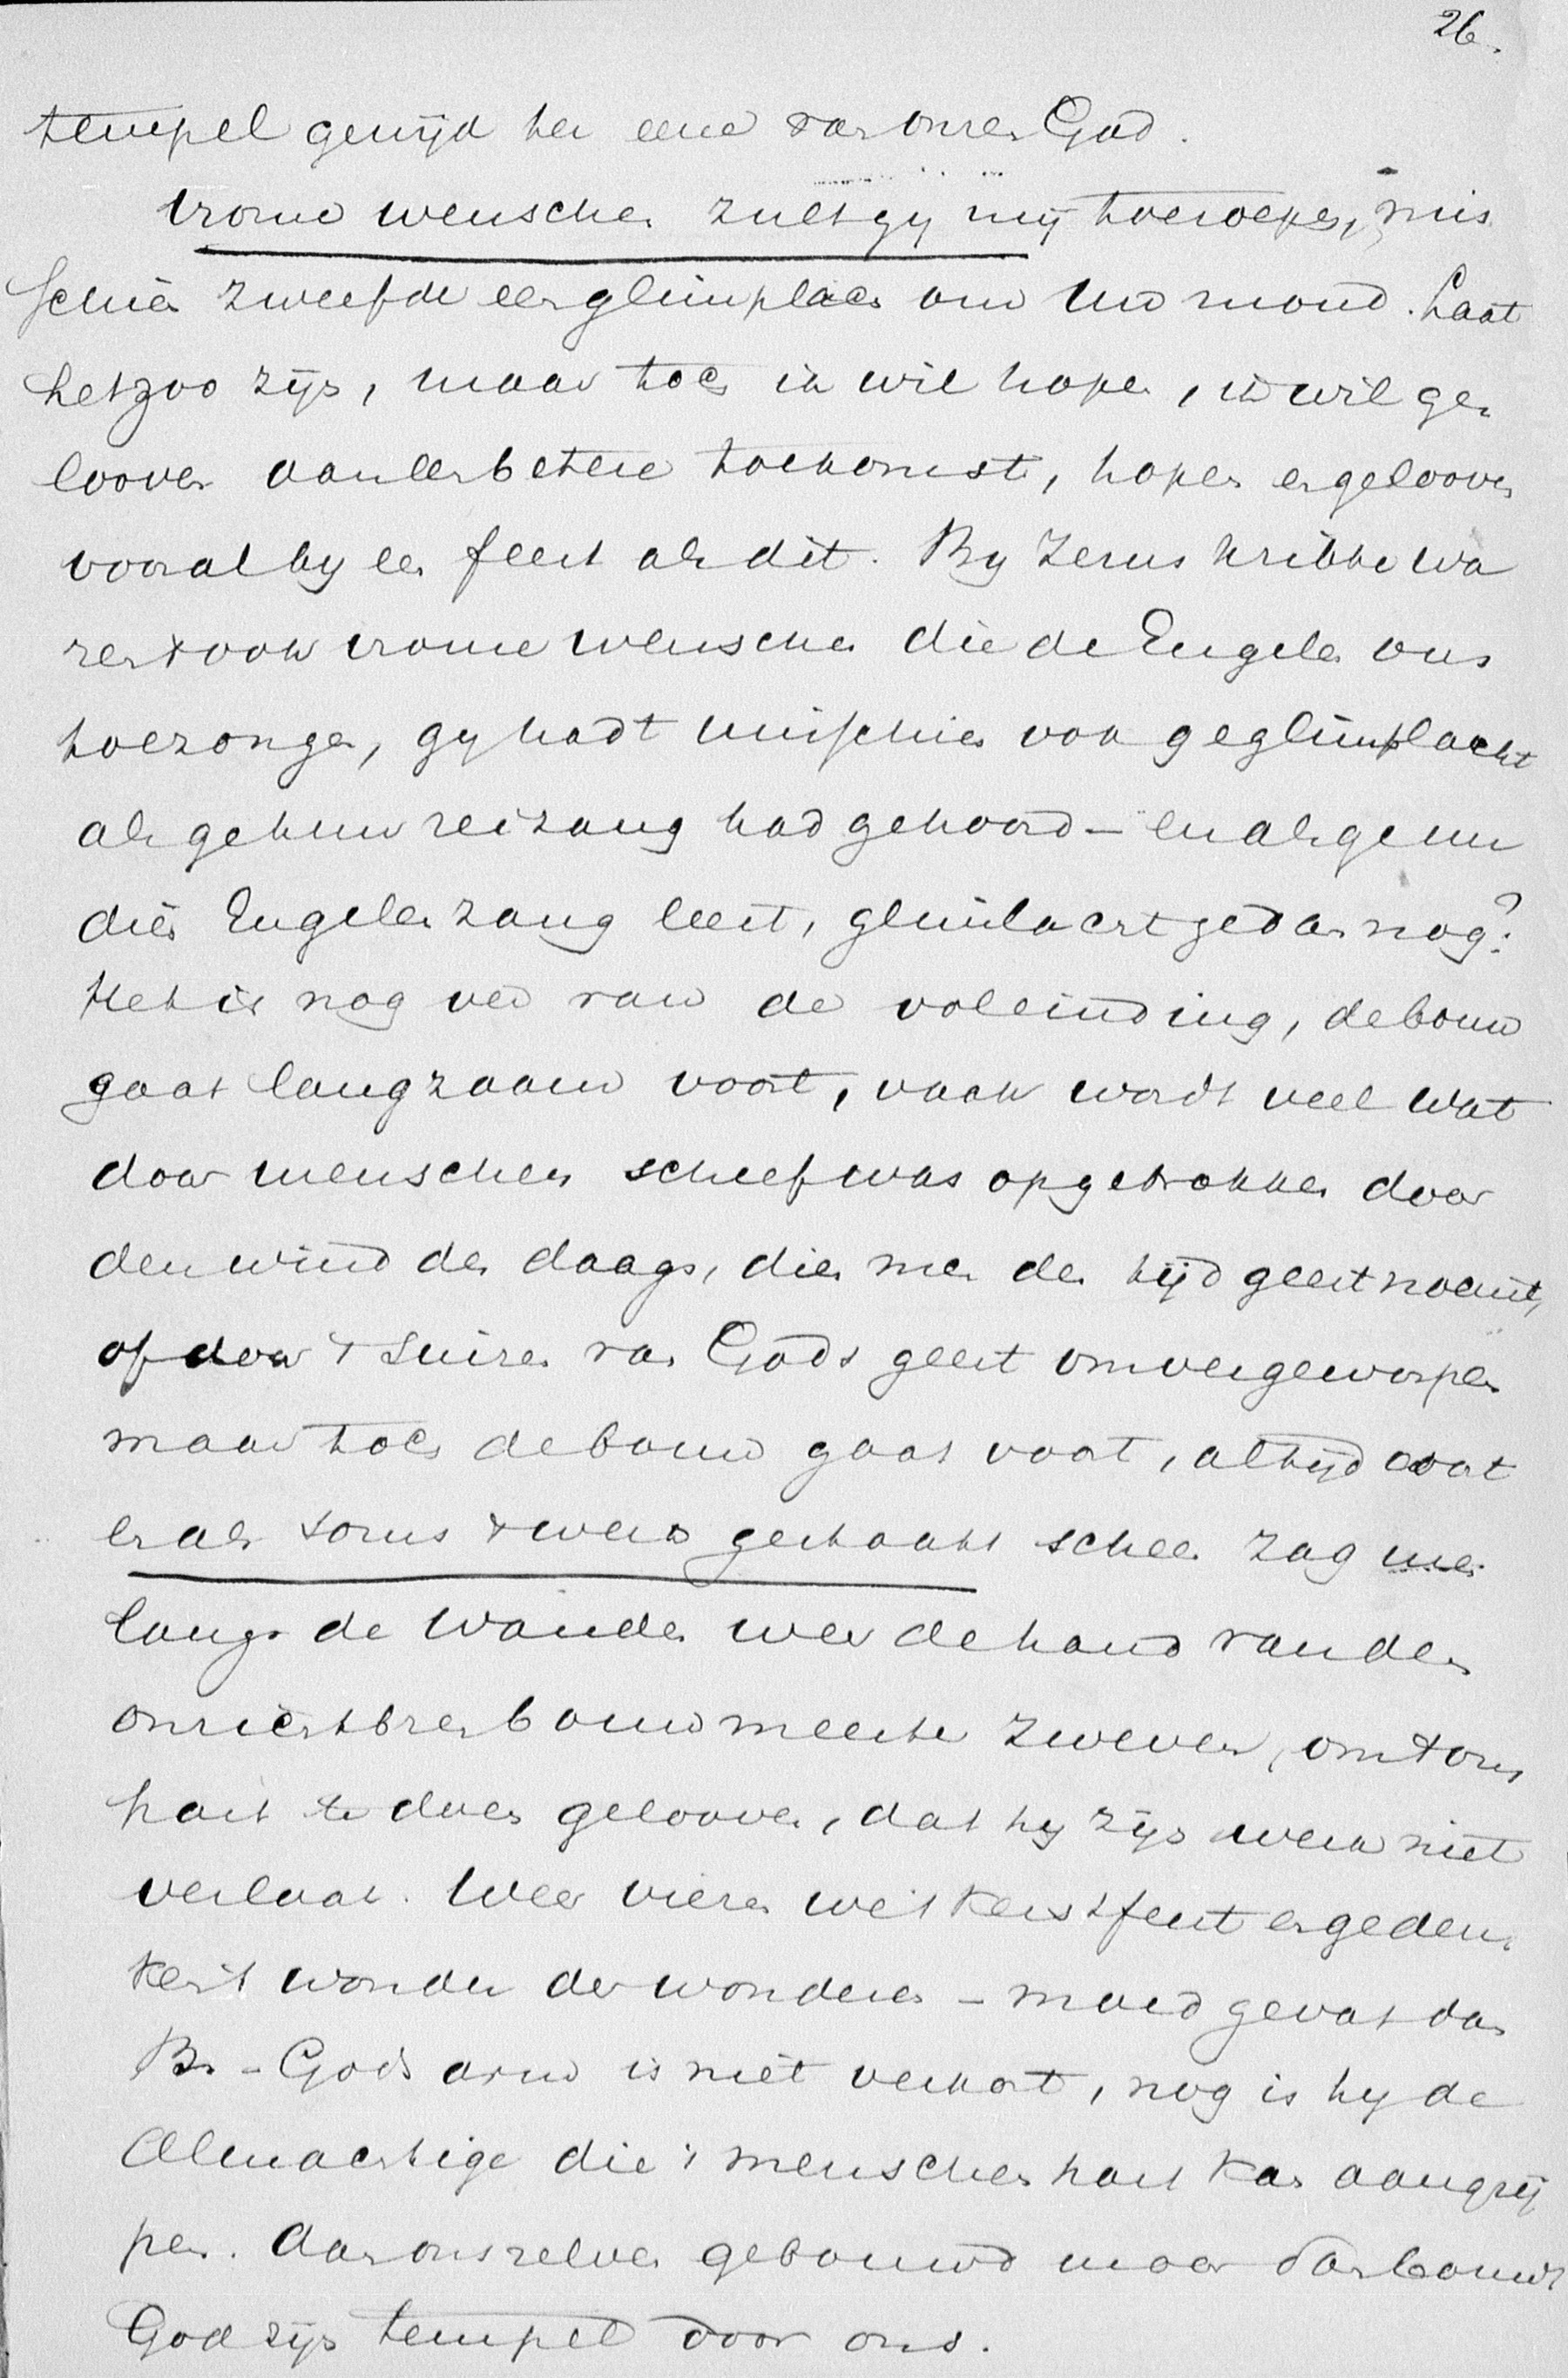 26.
tempel gewijd ter eere van onzen God.
Vrome wenschen zult gij mij toeroepen, mis
schien zweefde een glimplach om Uw mond. Laat
het zoo zijn, maar toch ik wil hopen, ik wil ge
looven aan een betere toekomst, hopen en gelooven
vooral by een feest als dit. By Jezus kribbe wa
ren ook vrome wenschen die de Engelen ons
toezongen, gy hadt misschien ook geglimplacht
als ge hun reizang had gehoord - en als ge nu
dien Engelenzang leest, glimlacht ge dan nog?
Het is nog ver van de voleinding, de bouw
gaat langzaam voort, vaak wordt veel wat
door menschen scheef was opgetrokken door
den wind des daags, dien men den tijdgeest noemt,
of door 't suizen van Gods geest omvergeworpen
maar toch de bouw gaat voort, altijd voort
en als soms 't werk gestaakt scheen zag men
langs de wanden weer de hand van den
onzichtbren bouwmeester zweven, om 't ons
hart te doen gelooven, dat hy zijn werk niet
verlaat. Weer vieren we 't Kerstfeest en geden
ken 't wonder der wonderen - moed gevat dan
Br. - Gods arm is niet verkort, nog is hy de
Almachtige die 's menschen hart kan aangrij
pen. Aan ons zelven gebouwd maar dan bouwt
God zijn tempel door ons.